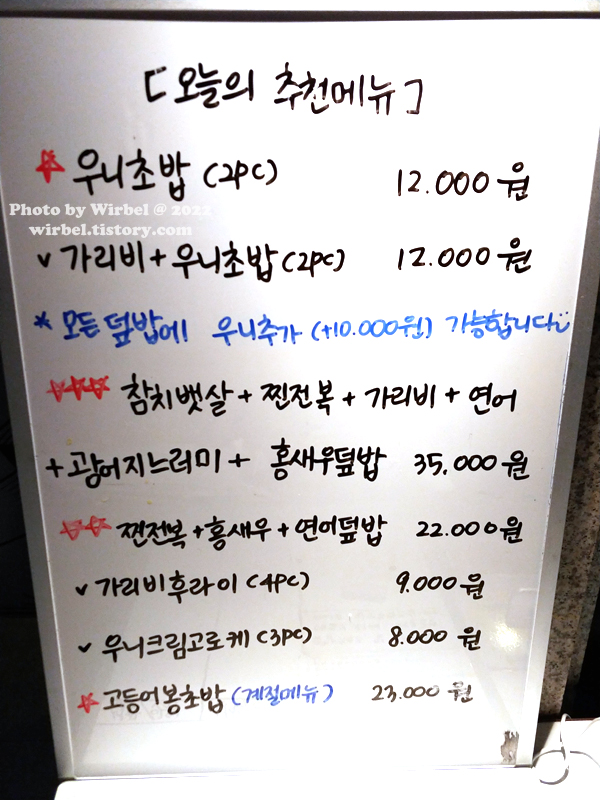 [오늘의 추천메뉴]
☆ 우니초밥 (2pc) 12.000원
Photo by Wirbel @ 2022
wirbel.tistory.com
v 가리비+우니초밥(2pc) 12.000원
* 모든 덮밥에 우니추가 (+10.000원) 가능합니다
☆☆☆ 참치뱃살 + 찐전복 + 가리비 + 연어
+ 광어지느러미 + 홍새우덮밥 35.000원
☆☆ 찐전복+홍새우+연어덮밥 22.000원
v 가리비후라이 (4pc) 9.000원
v 우니크림고로케 (3pc) 8.000원
☆ 고등어봉초밥 (계절메뉴) 23.000원